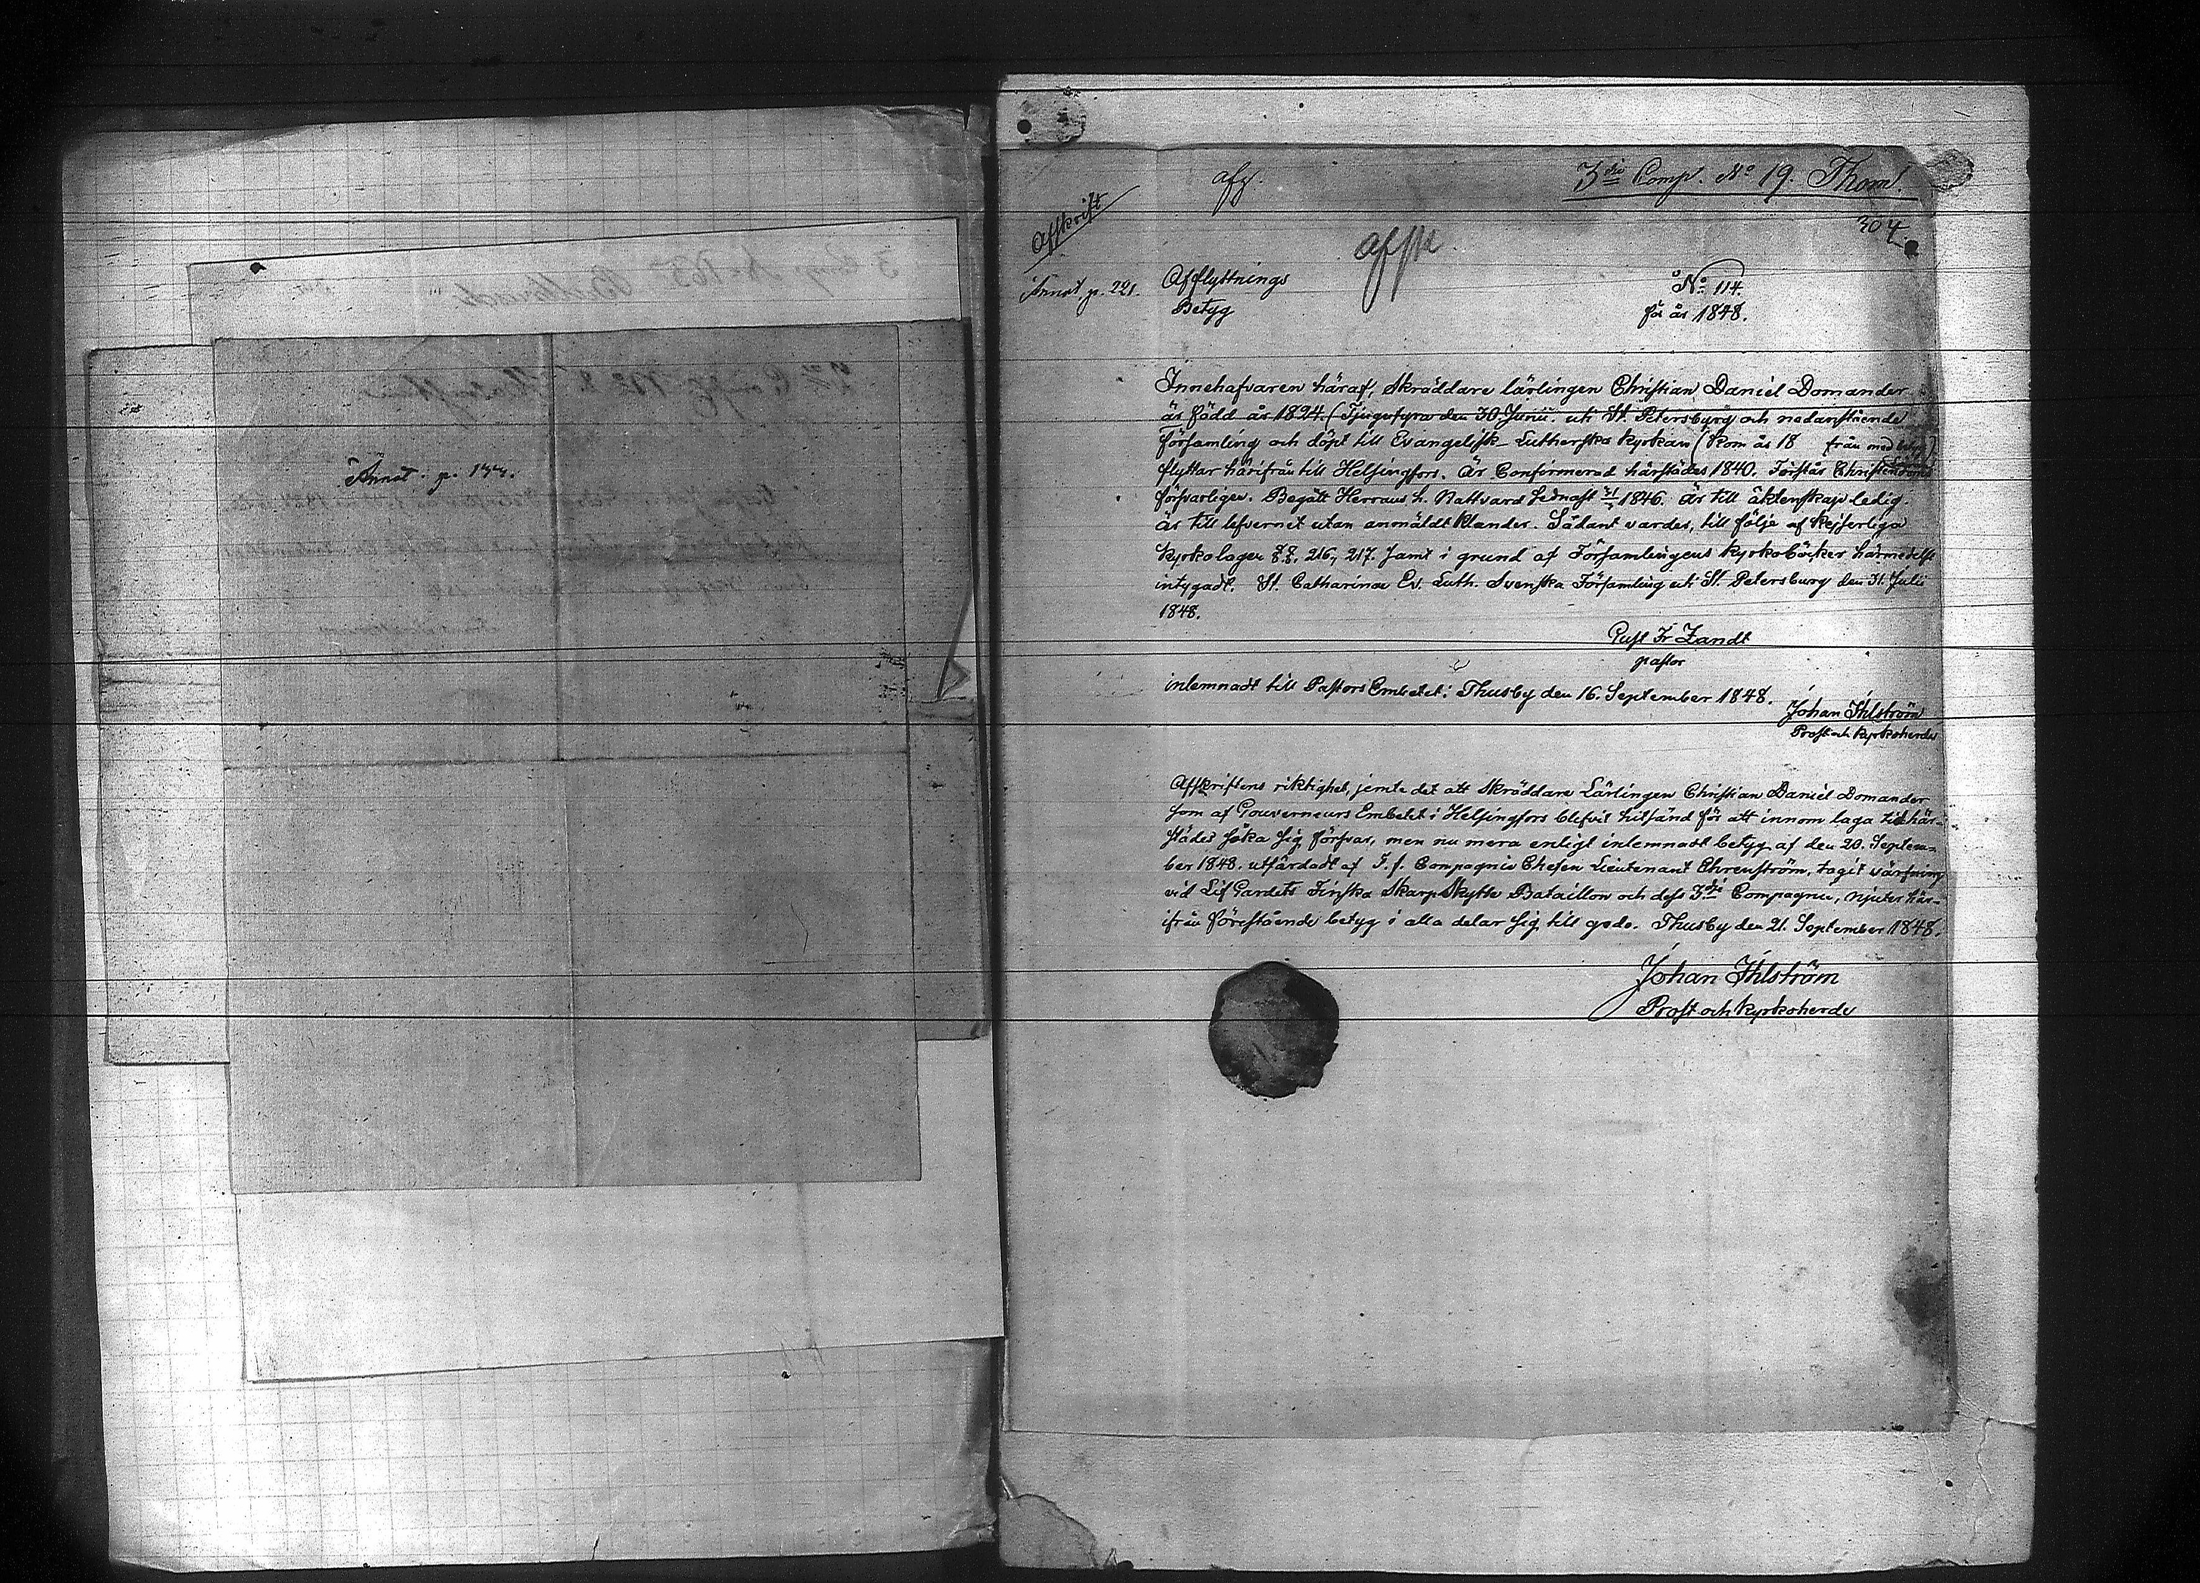 Annot. p. 177.
3die Comp. No 19. Thom.
afg.
Afskrift
304.
afsk
Annot. p. 221.
Afflyttnings
Betyg
No 114.
för år 1848.
Innehafvaren häraf, Skräddare lärlingen Christian Daniel Domander
är född år 1824 (Tjugufyra den 30 Junii uti St Petersburg och nedanstående
församling och döpt till Evangelisk Lutherska kyrkan (kom år 18 från med betyg)
flyttar härifrån till Helsingfors. Är Confirmerad härstädes 1840. Förstår Christendomen
försvarligen. Begått Herrans h. Nattvard sednast 1846. Är till äktenskap ledig.
är till lefvernet utan anmäldt klander. Sådant varder, till följe af Kejserliga
kyrkolagen §§. 216, 217. samt i grund af Församlingens kyrkoböcker härmedelst
intygadt. St. Catharinae Ev. Luth. Svenska Församling uti St. Petersburg den 31. Julii
1848.
Gust Fr Zandt
pastor
inlemnadt till Pastors Embetet i Thusby den 16. September 1848.
Johan Ihlström
Prost och kyrkoherde
Afskriftens riktighet, jemte det att Skräddare Lärlingen Christian Daniel Domander
som af Gouverneurs Embetet i Helsingfors blifvit hitsänd för att innom laga tid här-
städes söka sig försvar, men nu mera enligt inlemnadt betyg af den 20. Septem-
ber 1848. utfärdadt af T. f. Compagnie Chefen Lieutenant Ehrenström, tagit värfning
vid Lif Gardets Finska Skarp Skytte Bataillon och dess 3die Compagnie, njuter här-
ifrån förestående betyg i alla delar sig till godo. Thusby den 21. September 1848.
Johan Ihlström
Prost och Kyrkoherde